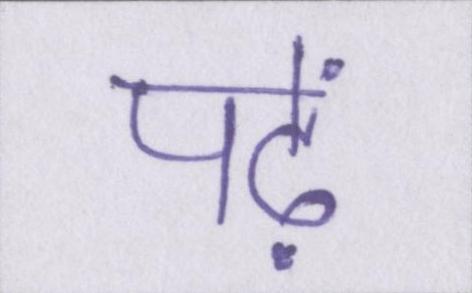 पढ़ें